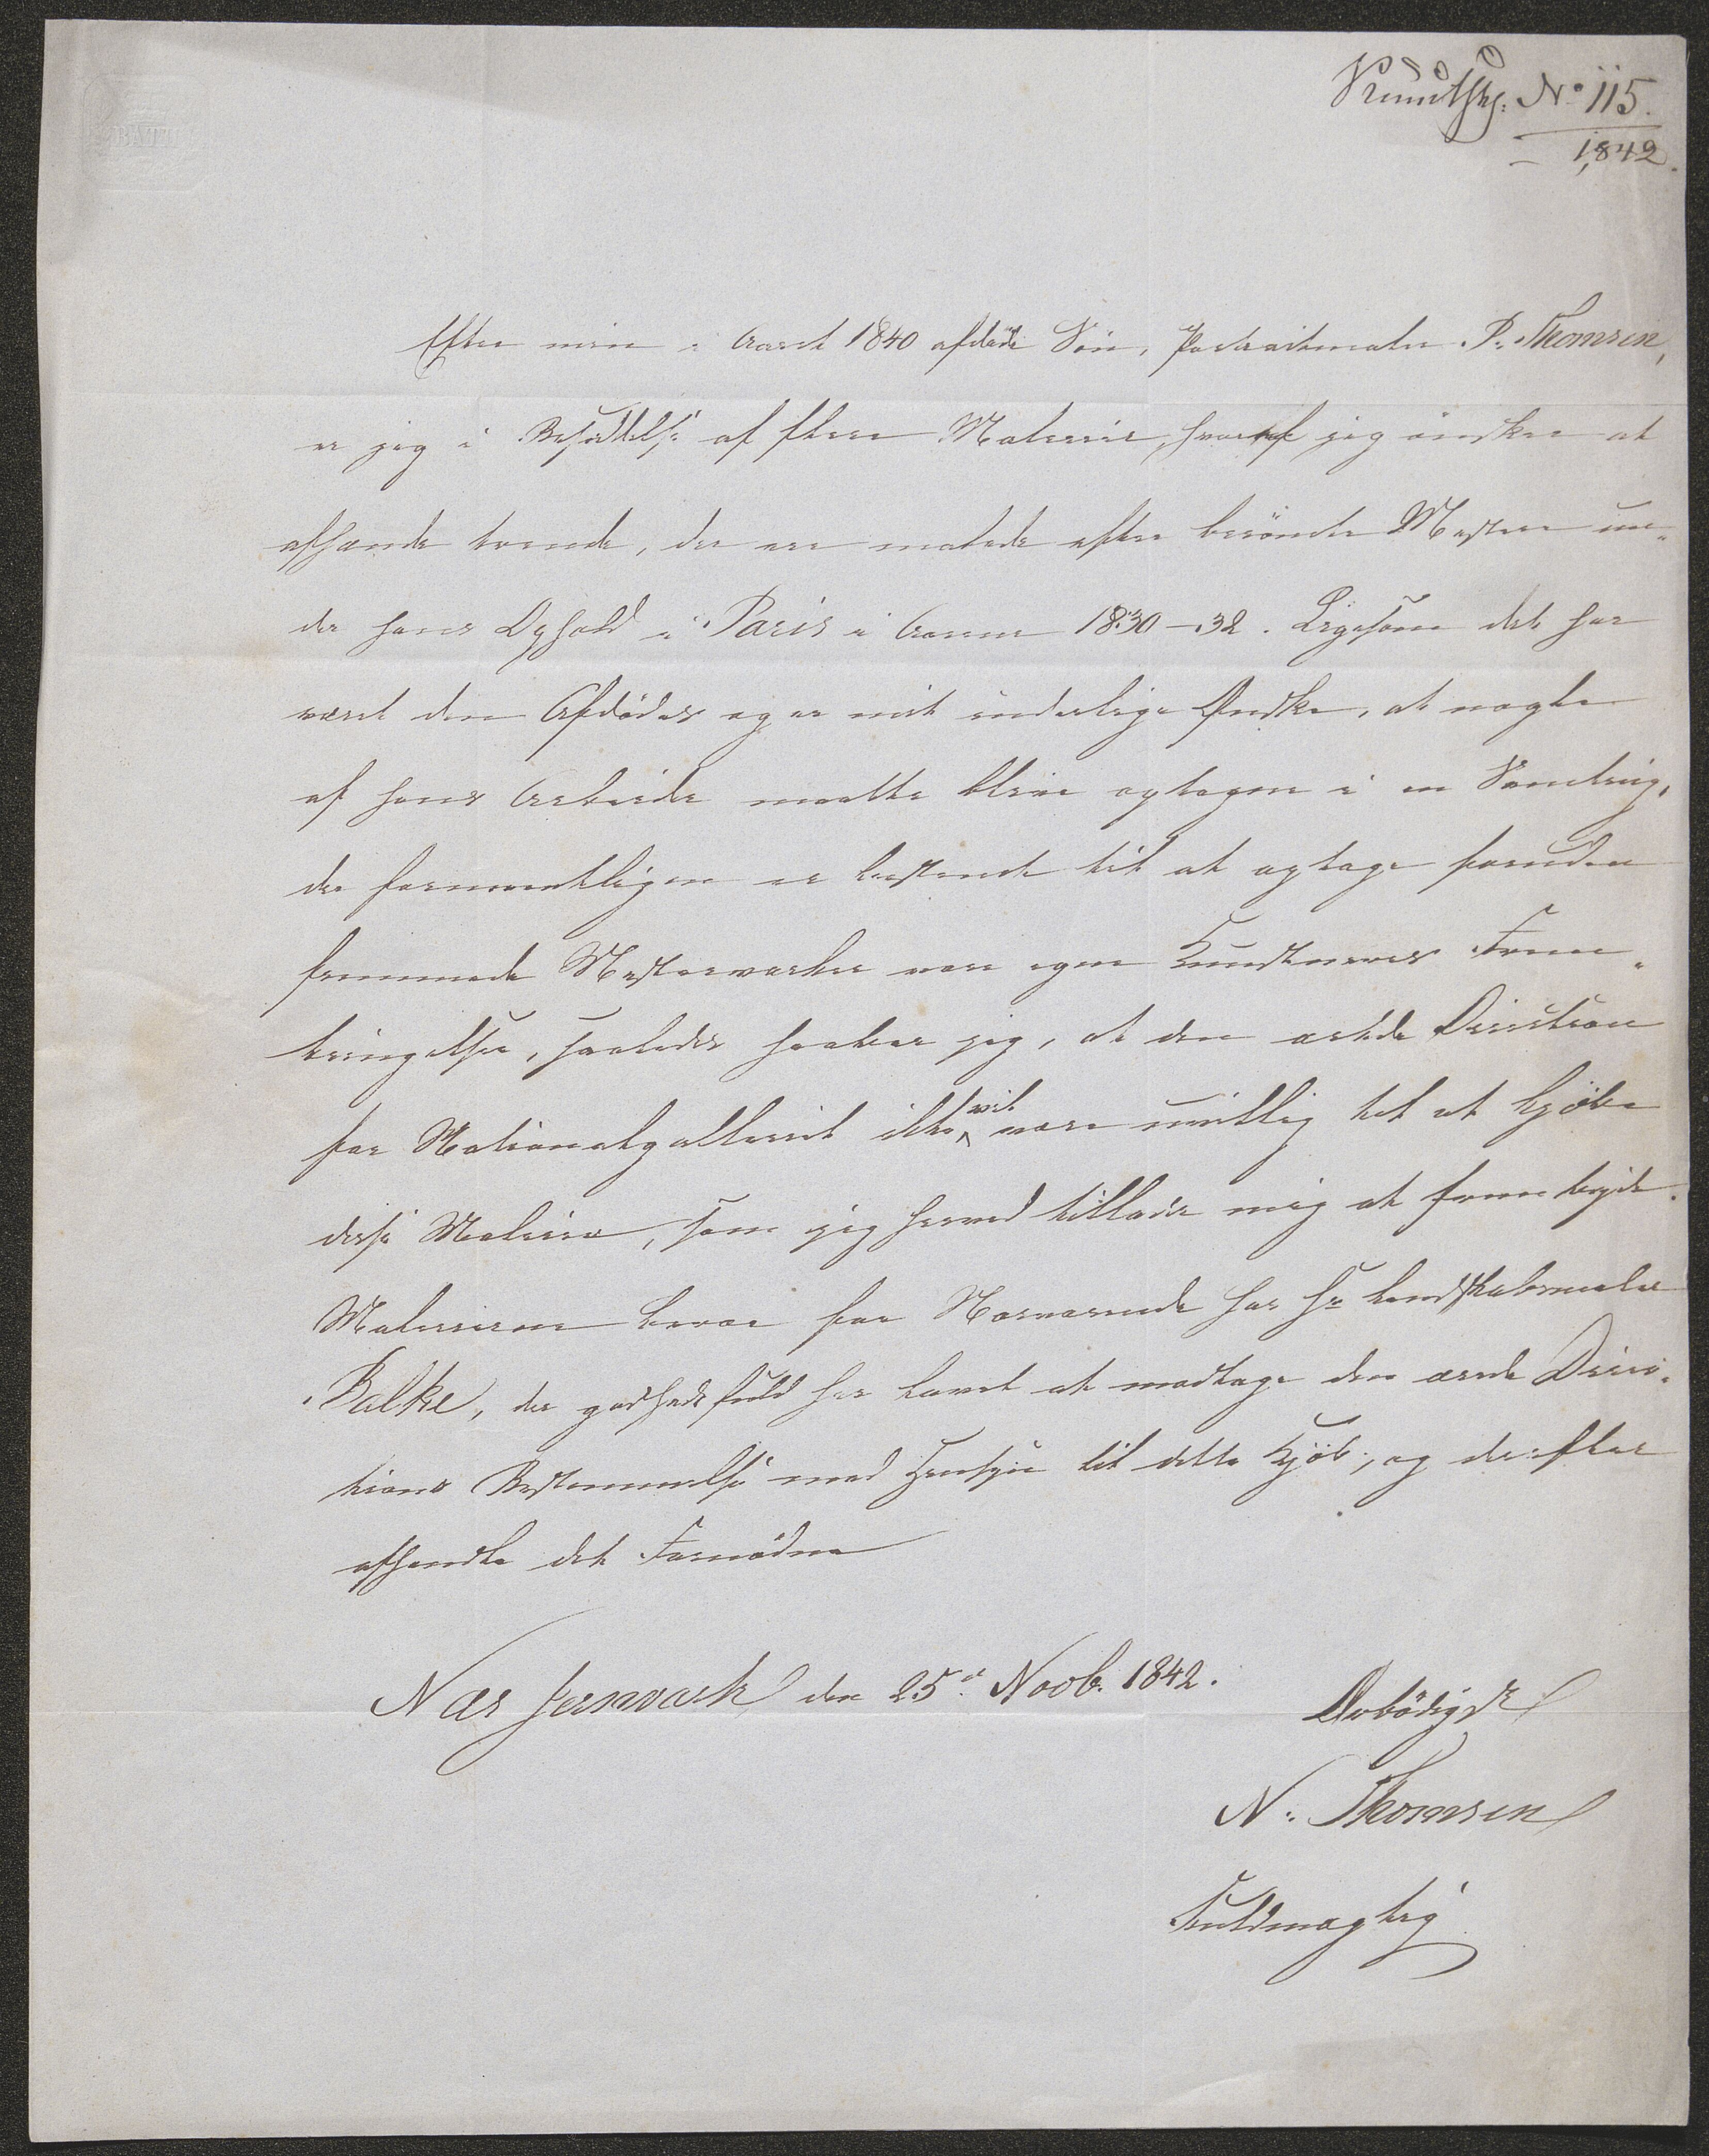 No 115.
1842.
Efter min i Aaret 1840 afdöde Sön, Portraitmaler P. Thomsen,
er jeg i Besiddelse af flere Malerier, hvoraf jeg önsker at
afhænde tvende, der ere malede efter berömte Mestere un-
der hans Ophold i Paris i Aarene 1830-32. Ligesom det har
været den Afdödes og er mit inderlige Ønske, at nogle
af hans Arbeider maatte blive optagne i en Samling,
der formeentligen er bestemt til at optage foruden
fremmede Mesterværker vore egne Kunstneres Frem-
bringelser, saaledes haaber jeg, at den ærede Direction
for Nationalgalleriet ikke vil være uvillig til at kjöbe
disse Malerier, som jeg herved tillader mig at frembyde.
Malerierne beroe for Nærværende hos Hr Landskabsmaler
Balke, der godhedsfuld har lovet at modtage den ærede Direc-
tions Bestemmelse med Hensyn til dette Kjöb, og derefter
afhandle det Fornödne
Næs Jernværk den 25de Novb. 1842.
Ærbödigst
N. Thomsen
Fuldmægtig